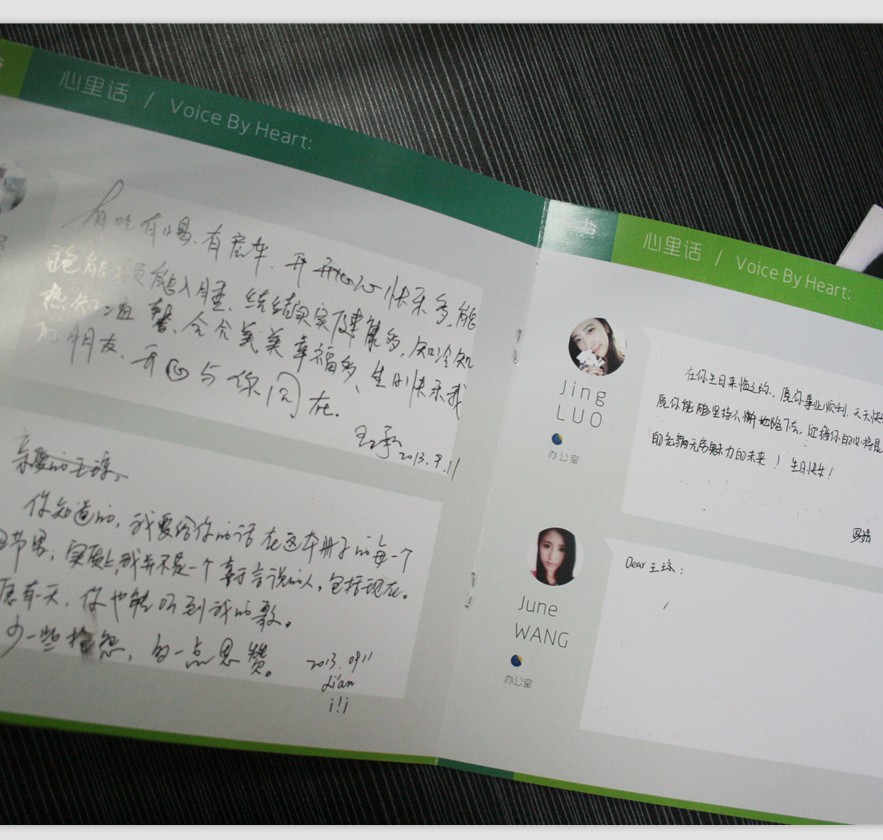 心里话 / Voice By Heart:
有吃有喝、有房车、开开心心快乐多,能
跑能 能入睡、结结实实健康多,知冷知
热知温馨、合合美美幸福多、生日快乐我
的朋友、开心与你同在。
2013.9.11
亲爱的王琼。
你知道的,我要给你的话在这本册子的每一个
细节里,实际上,我并不是一个喜欢言说的人,包括现在。
愿有一天,你也能听到我的歌。
少一些抱怨,多一点恩赞。
2013.0911
Jian
心里话 / Voice By Heart:
Jing
LUO
办公室
在你生日来临之际,愿你事业顺利,天天快
愿你能
的充满无穷魅力的未来!生日快乐!
罗靖
June
WANG
办公室
Dear 王琼: